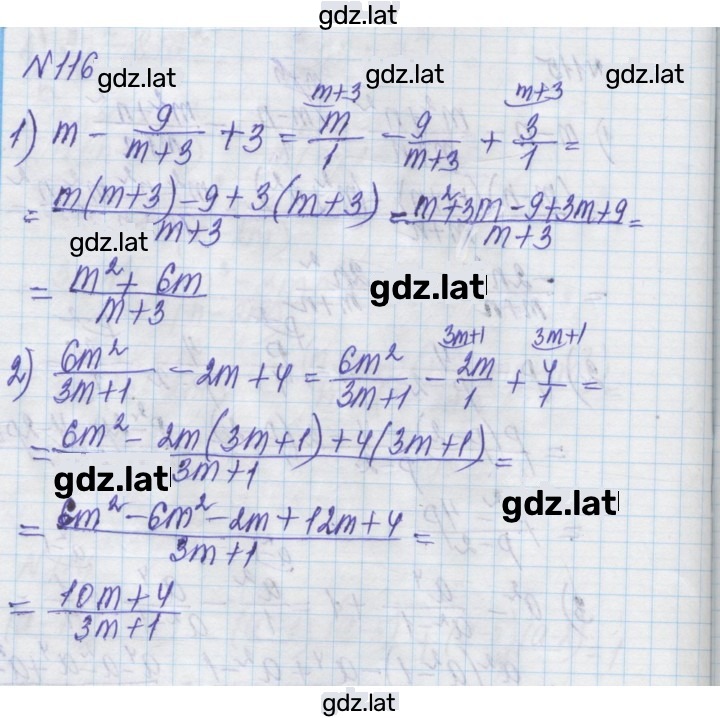 gdz.lat
№116
gdz.lat
gdz.lat
gdz.lat
1) m - 9/(m+3) + 3 = m/1 (m+3) - 9/(m+3) + 3/1 (m+3) =
= (m(m+3) - 9 + 3(m+3))/(m+3) = (m²+3m - 9+3m+9)/(m+3) =
gdz.lat
= (m² + 6m)/(m+3)
gdz.lat
2) 6m²/(3m+1) - 2m + 4 = 6m²/(3m+1) - 2m/1 (3m+1) + 4/1 (3m+1) =
= (6m² - 2m(3m+1) + 4(3m+1))/(3m+1) =
gdz.lat
gdz.lat
= (6m² - 6m² - 2m + 12m + 4)/(3m+1) =
= (10m + 4)/(3m+1)
gdz.lat